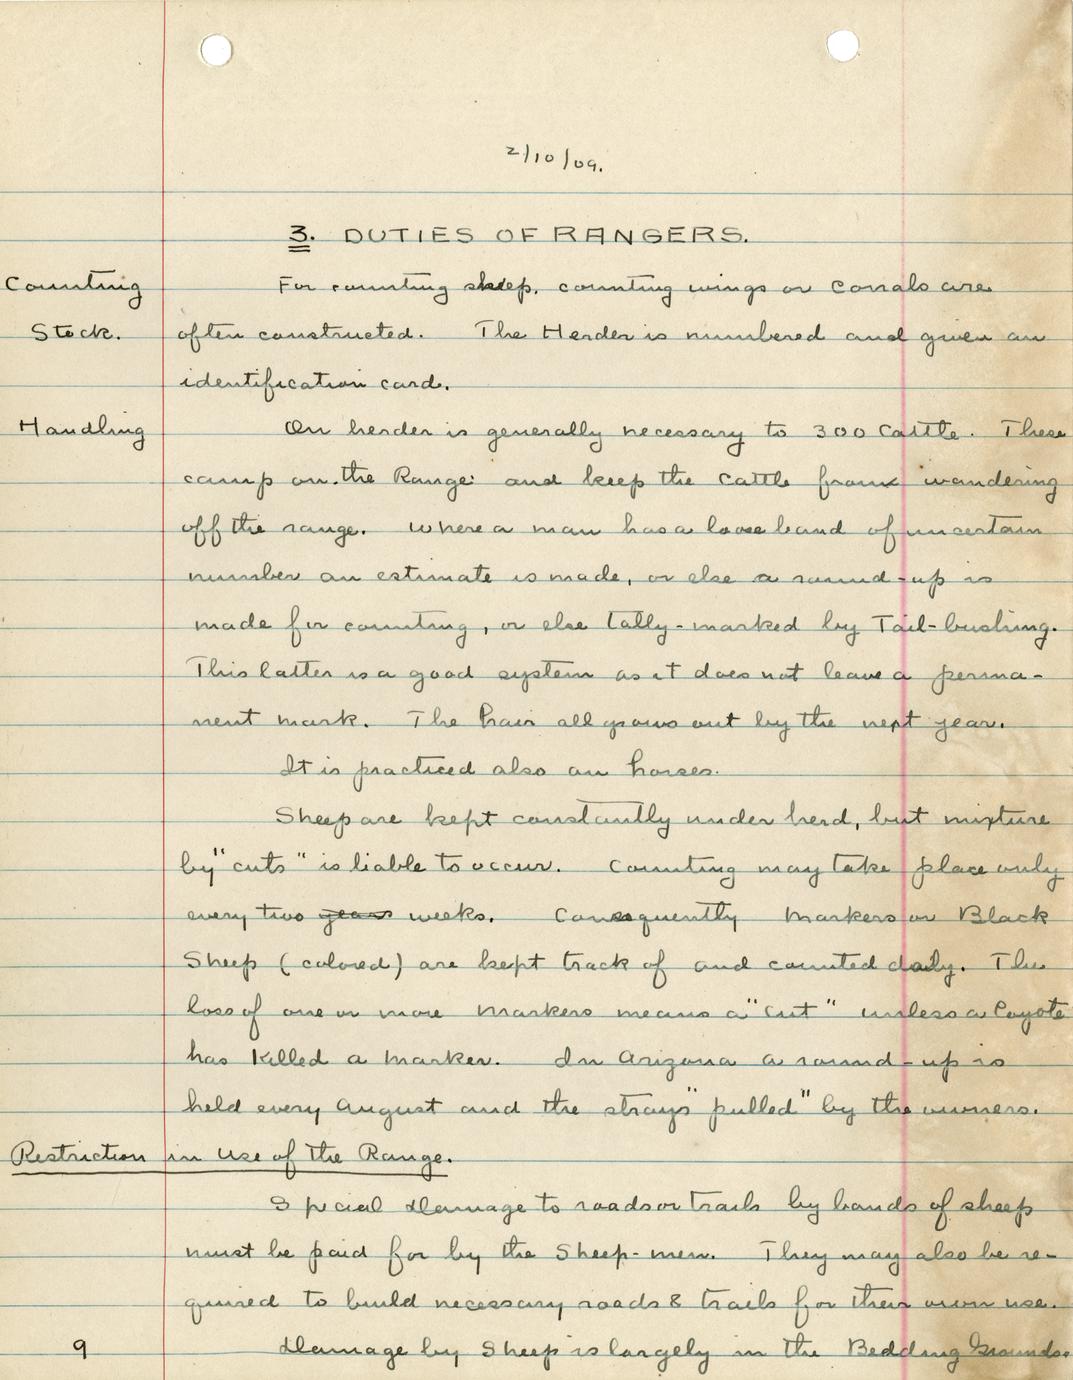 2/10/09.
3. DUTIES OF RANGERS.
Counting For counting sheep, counting wings or Corrals are
Stock. often constructed. The Herder is numbered and given an
identification card.
Handling On herder is generally necessary to 300 Cattle. These
camp on the Range and keep the Cattle from wandering
off the range. Where a man has a loose band of uncertain
number an estimate is made, or else a round-up is
made for counting, or else tally-marked by Tail-bushing.
This latter is a good system as it does not leave a perma-
nent mark. The hair all grows out by the next year.
It is practiced also on horses.
Sheep are kept constantly under herd, but mixture
by "cuts" is liable to occur. Counting may take place only
every two years weeks. Consequently Markers or Black
Sheep (colored) are kept track of and counted daily. The
loss of one or more Markers means a "Cut" unless a Coyote
has Killed a Marker. In Arizona a round-up is
held every August and the strays "pulled" by the owners.
Restriction in Use of the Range.
Spcial Damage to roads or trails by bands of sheep
must be paid for by the Sheep-men. They may also be re-
quired to build necessary roads & trails for their own use.
9 Damage by Sheep is largely in the Bedding Grounds.